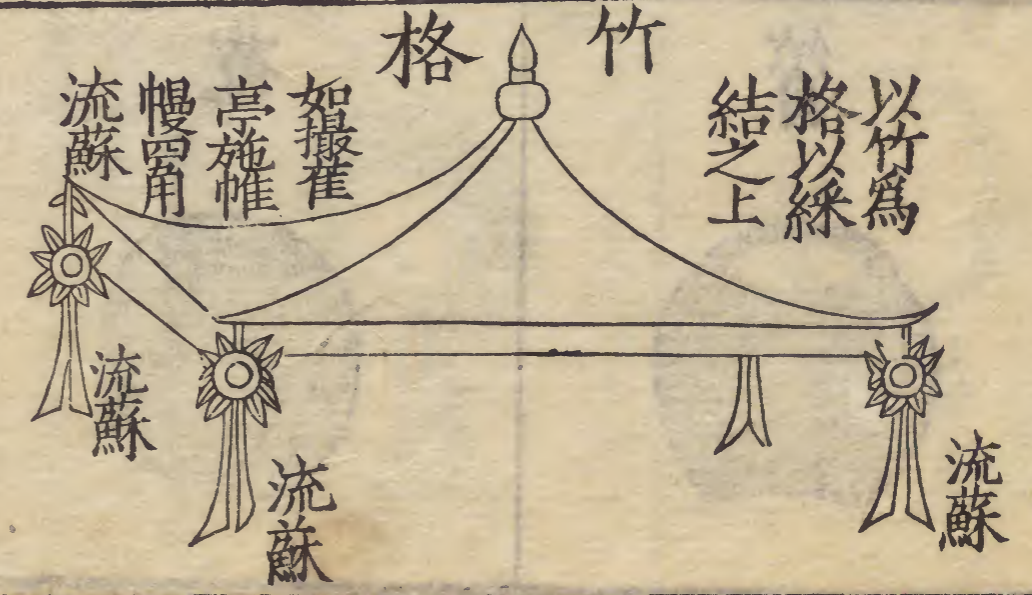 竹格
以竹爲
格以綵
結之上
如撮蕉
亭施帷
幔四角
流蘇
流蘇
流蘇
流蘇